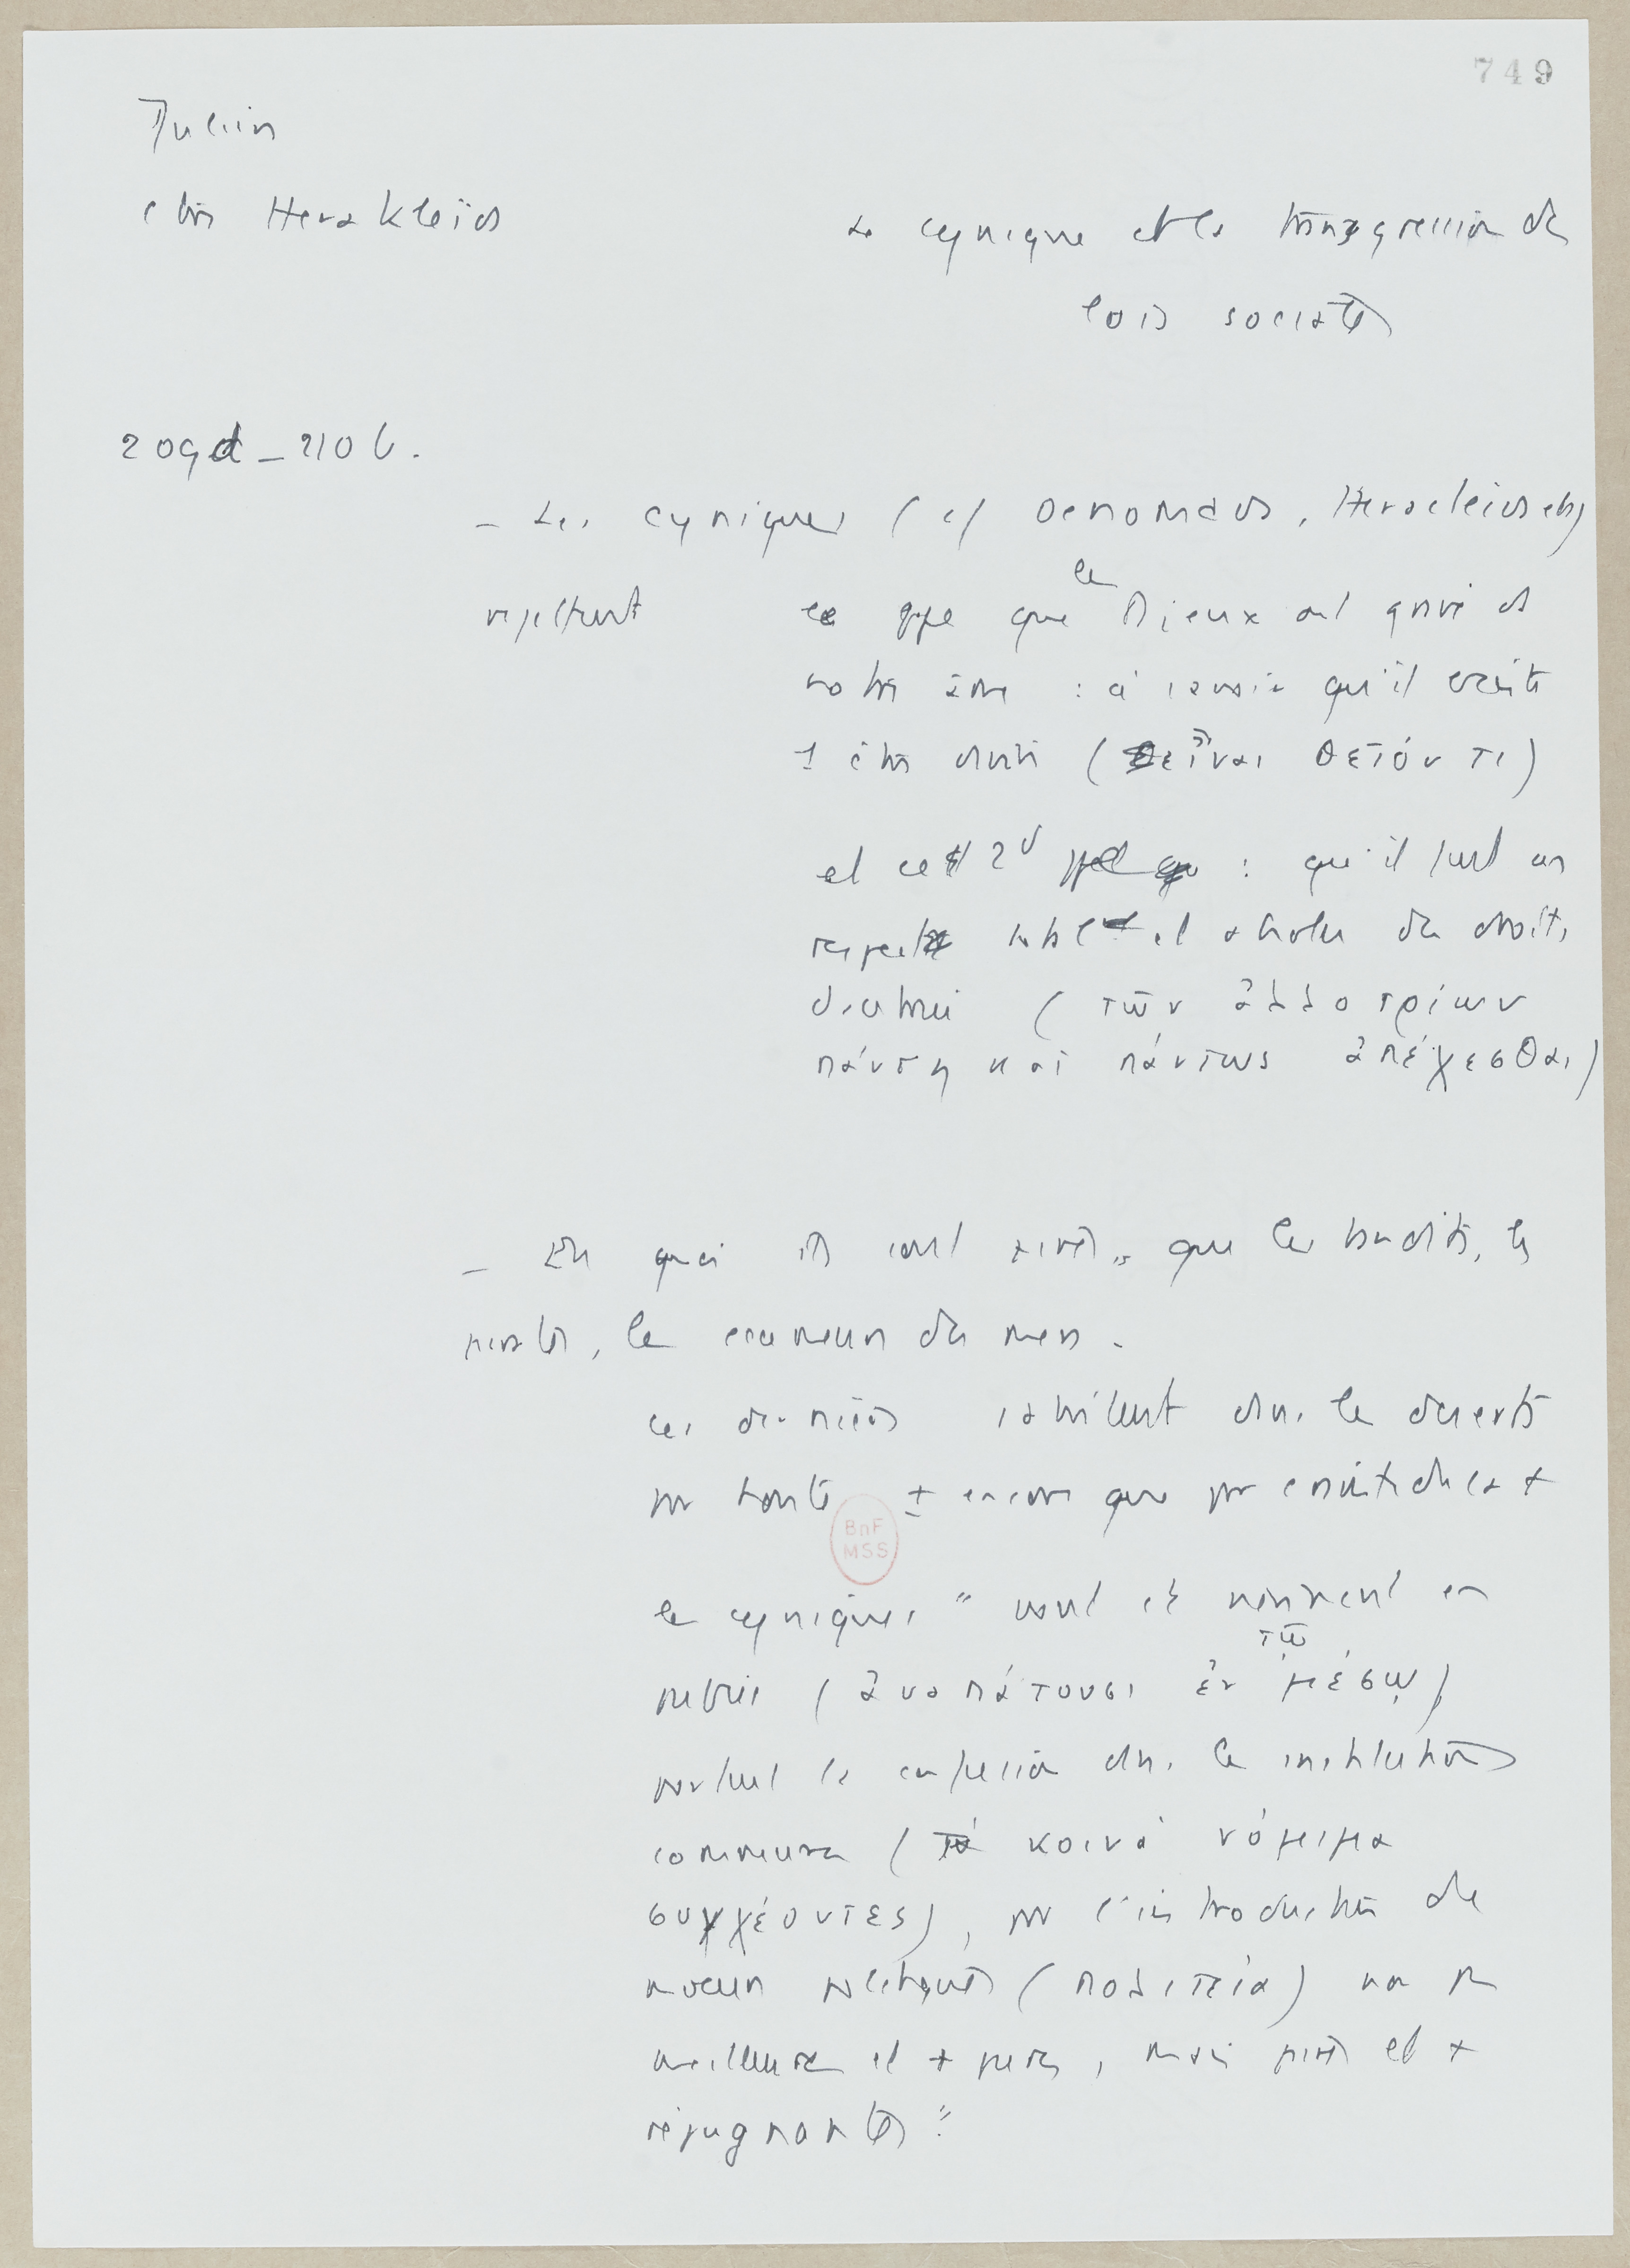 749
Julien
ctre Herakleios
Le cynique et la transgression des
lois sociales
209d_210b.
_ Les cyniques (cf Oenomaos, Heracleios etc)
rejettent
le ppe que les Dieux ont gravé ds
notre âme : à savoir qu'il existe
1 être divin (εἶναι θεῖόν τι)
et ce 2d : qu'il faut un
respect total et absolu des droits
d'autrui (τῶν ἀλλοτρίων
πάντη καὶ πάντως ἀπέχεσθαι)
_ En quoi ils sont pires que les bandits, les
pirates, les écumeurs des mers.
ces derniers s'abritent dns les déserts
par honte + encore que par crainte
les cyniques "vont et viennent en
public (ἀναπάτουσι ἐν τῷ μέσῳ)
portent la confusion dns les institutions
communes (τὰ κοινὰ νόμιμα
συγχέοντες), par l'introduction de
moeurs politiques (πολιτεία) non pas
meilleures et + pures, mais pires et +
répugnantes"
BnF
MSS